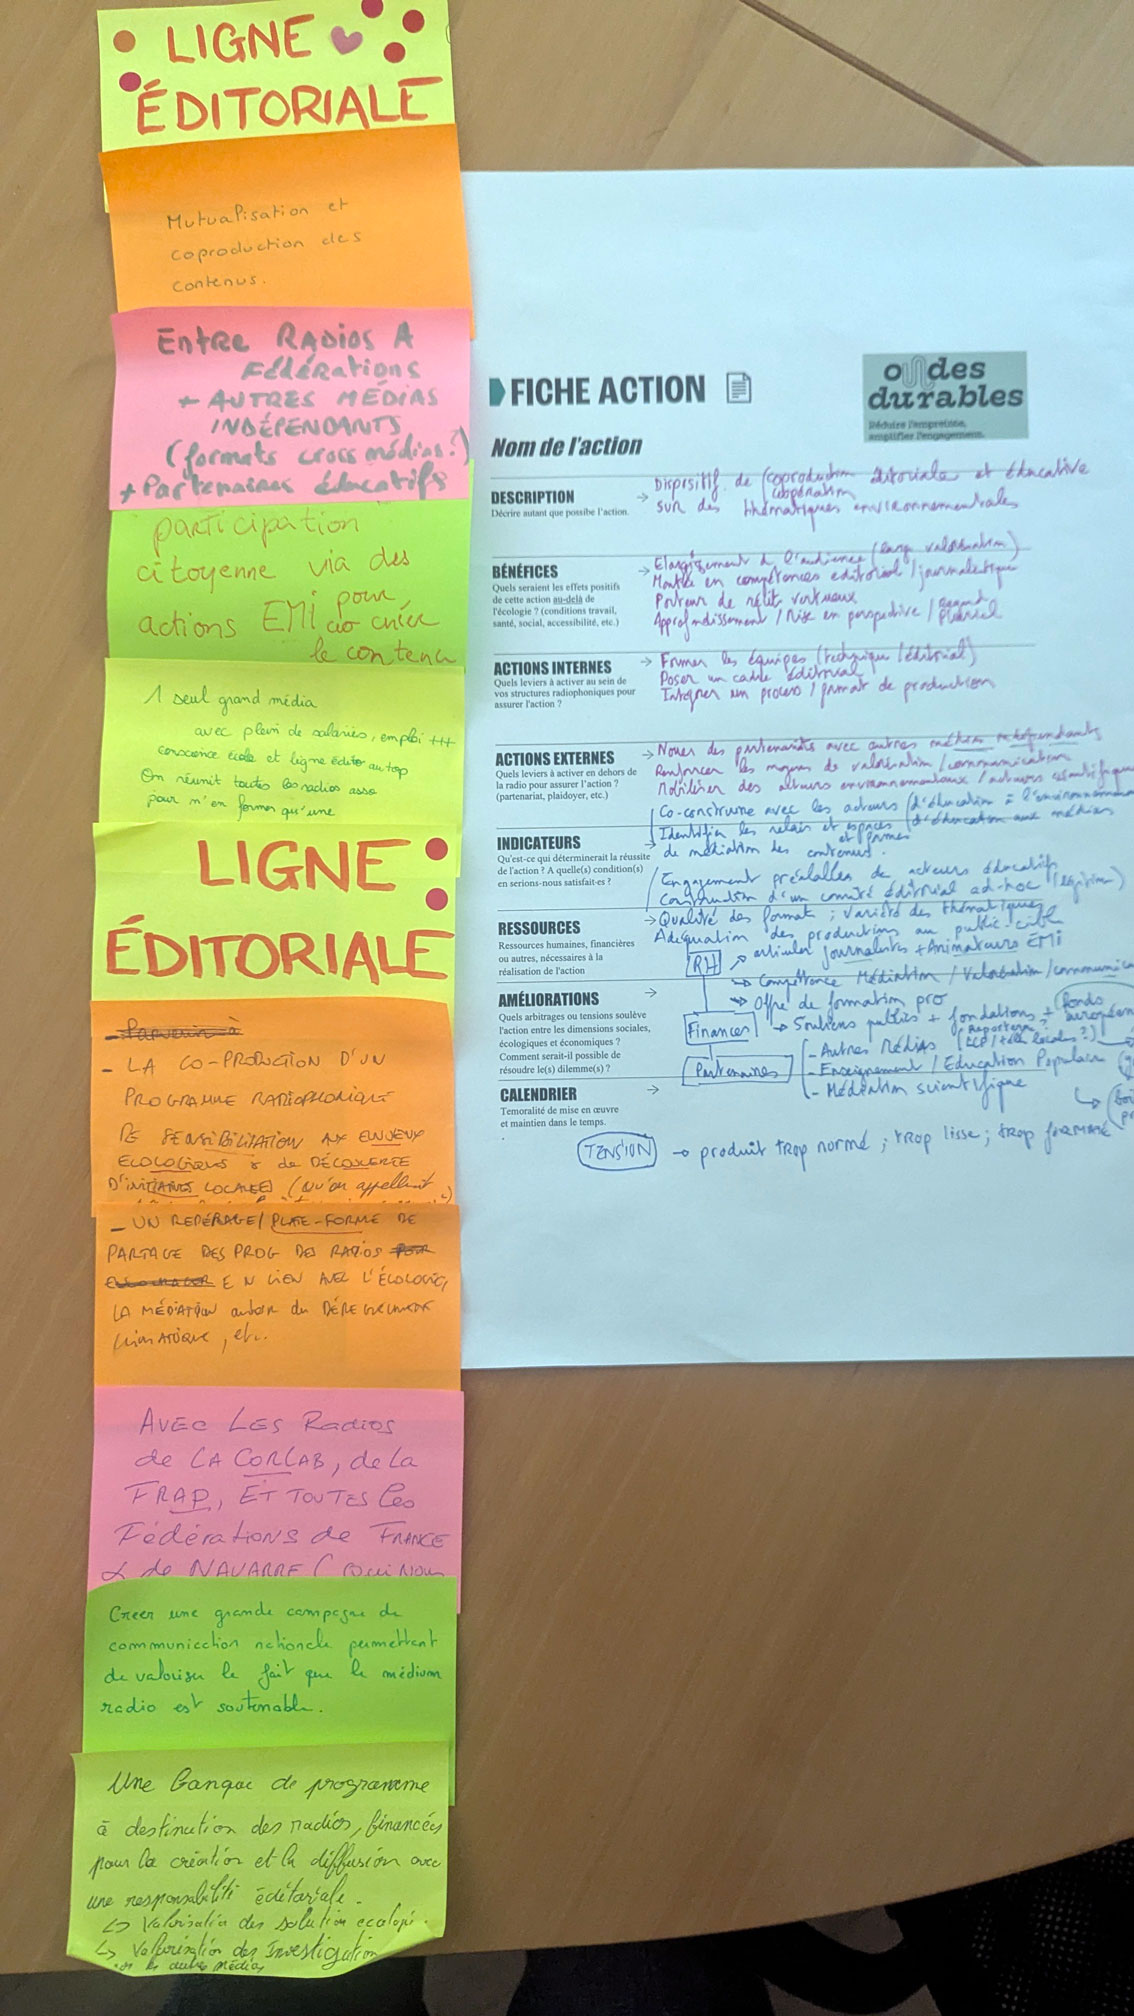 LIGNE
ÉDITORIALE
Mutualisation et
coproduction des
contenus.
Entre Radios A
Fédérations
+ AUTRES MÉDIAS
INDÉPENDANTS
(formats cross médias?)
+ Partenaires éducatifs
participation
citoyenne via des
actions EMI pour
co créer
le contenu
1 seul grand média
avec plein de salariés, emploi +++
conscience écolo et ligne édito au top
On réunit toutes les radios asso
pour n'en former qu'une
LIGNE
ÉDITORIALE
- LA CO-PRODUCTION D'UN
PROGRAMME RADIOPHONIQUE
DE SENSIBILISATION AUX ENJEUX
ECOLOGIQUES & de DÉCOUVERTE
D'INITIATIVES LOCALES (qu'on appellerait
- UN REPÉRAGE/ PLATE-FORME DE
PARTAGE DES PROG DES RADIOS
EN LIEN AVEC L'ÉCOLOGIE,
LA MÉDIATION autour du DÉRÈGLEMENT
CLIMATIQUE, etc..
AVEC LES Radios
de LA CORLAB, de La
FRAP, ET TOUTES les
Fédérations de FRANCE
& de NAVARRE (
Créer une grande campagne de
communication nationale permettant
de valoriser le fait que le médium
radio est soutenable.
Une banque de programme
à destination des radios, financées
pour la création et la diffusion avec
une responsabilité éditoriale.
↳ Valorisation des solution ecologi.
↳ Valorisation des Investigation
les autres médias
FICHE ACTION
ondes
durables
Réduire l'empreinte,
amplifier l'engagement.
Nom de l'action
DESCRIPTION
Décrire autant que possibe l'action.
→ Dispositif de coproduction éditoriale et éducative
coopération
sur des thématiques environnementales
BÉNÉFICES
Quels seraient les effets positifs
de cette action au-delà de
l'écologie ? (conditions travail,
santé, social, accessibilité, etc.)
→ Elargissement de l'audience (
Montée en compétences éditorial / journalistique
Porteur de récit vertueux
Approfondissement / Mise en perspective / Regard
pluriel
ACTIONS INTERNES
Quels leviers à activer au sein de
vos structures radiophoniques pour
assurer l'action ?
→ Former les équipes (technique / éditorial)
Poser un cadre éditorial
Intégrer un process / format de production
ACTIONS EXTERNES
Quels leviers à activer en dehors de
la radio pour assurer l'action ?
(partenariat, plaidoyer, etc.)
→ Nouer des partenariats avec autres médias indépendants
Renforcer les moyens de valorisation / communication
Mobiliser des acteurs environnementaux / acteurs scientifique
Co-construire avec les acteurs (d'éducation à l'environnement
(d'éducation aux médias
Identifier les relais et espaces
et formes
de médiation des contenus.
INDICATEURS
Qu'est-ce qui déterminerait la réussite
de l'action ? A quelle(s) condition(s)
en serions-nous satisfait·es ?
Engagement préalables de acteurs éducatifs
Constitution d'un comité éditorial ad-hoc
→ Qualité des format ; Variété des thématiques
Adéquation des productions au public-cible
RESSOURCES
Ressources humaines, financières
ou autres, nécessaires à la
réalisation de l'action
RH → articuler journalistes + Animateurs EMI
→ Compétence Médiation / Valorisation / communica
→ Offre de formation pro
AMÉLIORATIONS
Quels arbitrages ou tensions soulève
l'action entre les dimensions sociales,
écologiques et économiques ?
Comment serait-il possible de
résoudre le(s) dilemme(s) ?
Finances → Soutiens publics + fondations + fonds
européen
Partenaires
- Autres Médias (Reporterre ?
(LCP / télé locales ?)
- Enseignement / Education Populaire
- Médiation scientifique
CALENDRIER
Temoralité de mise en œuvre
et maintien dans le temps.
TENSION → produit trop normé ; trop lisse ; trop formaté